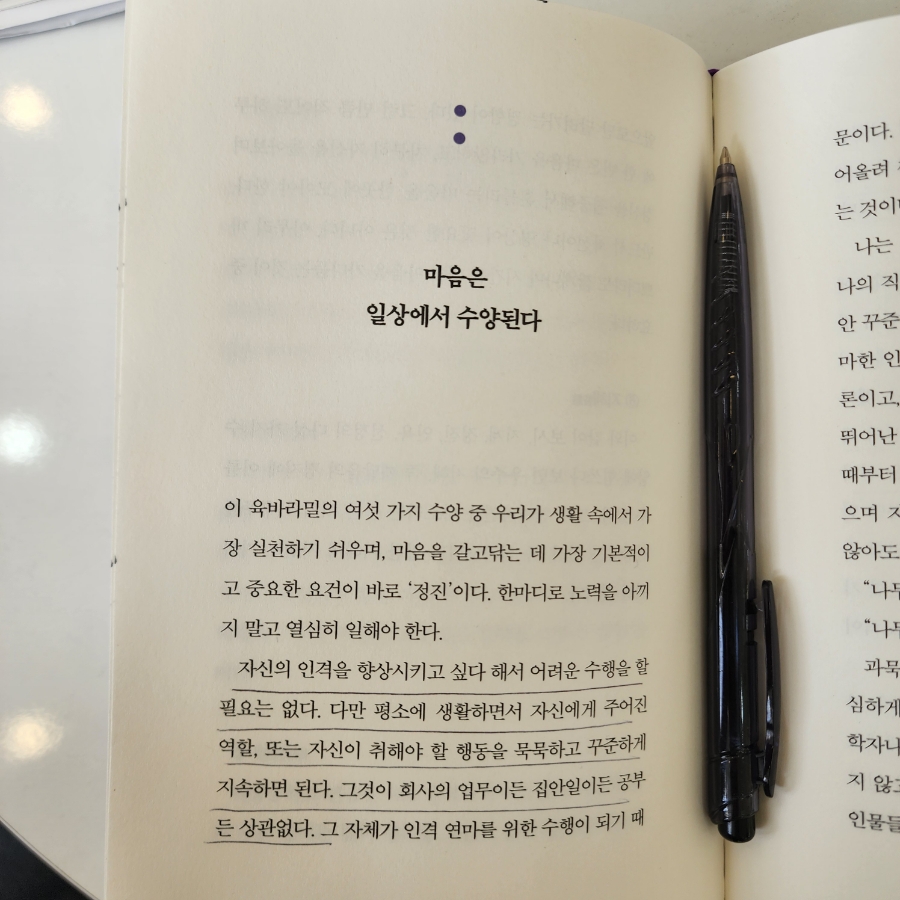 마음은
일상에서 수양된다
이 육바라밀의 여섯 가지 수양 중 우리가 생활 속에서 가
장 실천하기 쉬우며, 마음을 갈고닦는 데 가장 기본적이
고 중요한 요건이 바로 ‘정진’이다. 한마디로 노력을 아끼
지 말고 열심히 일해야 한다.
자신의 인격을 향상시키고 싶다 해서 어려운 수행을 할
필요는 없다. 다만 평소에 생활하면서 자신에게 주어진
역할, 또는 자신이 취해야 할 행동을 묵묵하고 꾸준하게
지속하면 된다. 그것이 회사의 업무이든 집안일이든 공부
든 상관없다. 그 자체가 인격 연마를 위한 수행이 되기 때
문이다.
어올려
는 것이
나는
나의 직
안 꾸준
마한 인
론이고,
뛰어난
때부터
으며 지
않아도
“나무
“나무
과묵
심하게
학자나
지 않고
인물들